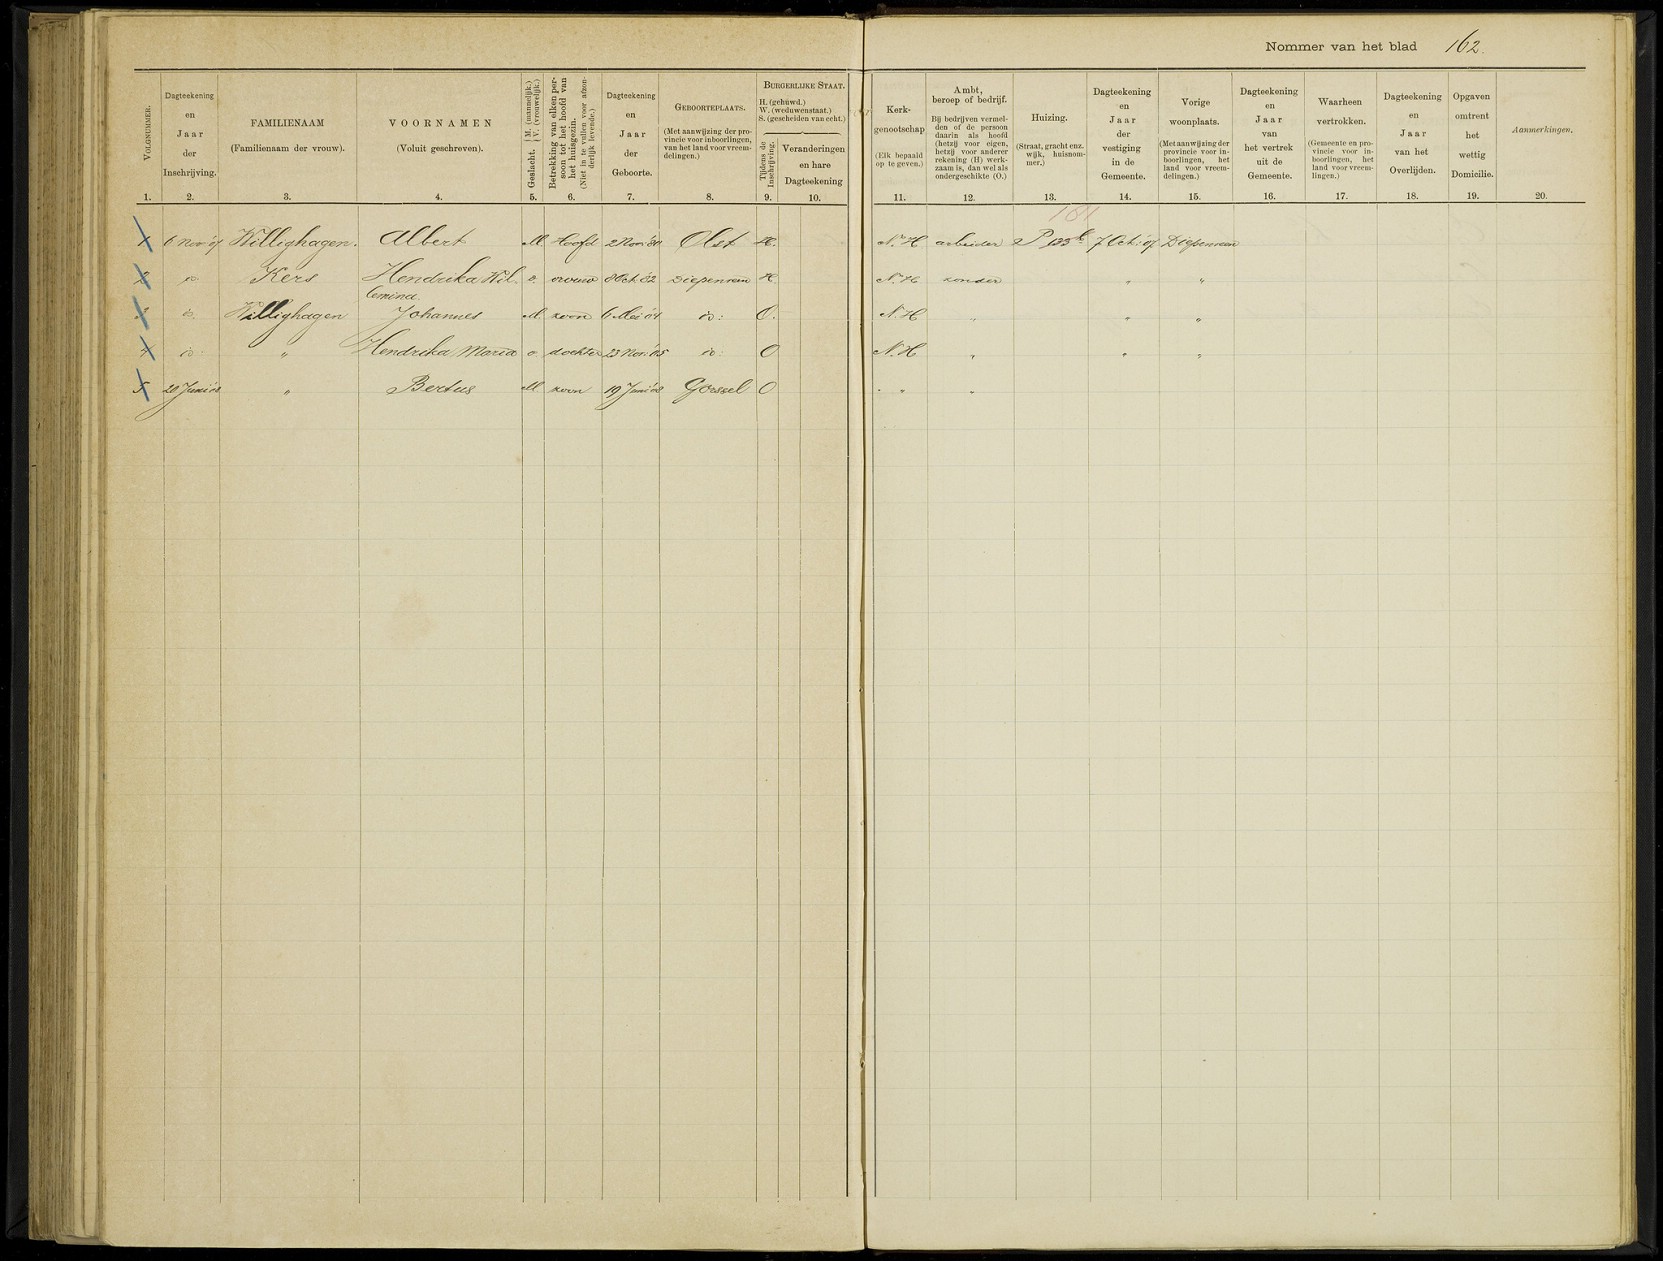 Nommer van het blad 162.
VOLGNUMMER.
Dagteekening en Jaar der Inschrijving.
FAMILIENAAM
(Familienaam der vrouw).
VOORNAMEN
(Voluit geschreven).
Geslacht. M. (mannelijk.) V. (vrouwelijk.)
Betrekking van elken persoon tot het hoofd van het huisgezin.
(Niet in te vullen voor afzonderlijk levende.)
Dagteekening en Jaar der Geboorte.
GEBOORTEPLAATS.
(Met aanwijzing der provincie voor inboorlingen, van het land voor vreemdelingen.)
BURGERLIJKE STAAT.
H. (gehuwd.)
W. (weduwenstaat.)
S. (gescheiden van echt.)
Tijdens de Inschrijving.
Veranderingen en hare Dagteekening
Kerkgenootschap
(Elk bepaald op te geven.)
Ambt, beroep of bedrijf.
Bij bedrijven vermelden of de persoon daarin als hoofd (hetzij voor eigen, hetzij voor anderer rekening (H) werkzaam is, dan wel als ondergeschikte (O.)
Huizing.
(Straat, gracht enz. wijk, huisnommer.)
Dagteekening en Jaar der vestiging in de Gemeente.
Vorige woonplaats.
(Met aanwijzing der provincie voor inboorlingen, het land voor vreemdelingen.)
Dagteekening en Jaar van het vertrek uit de Gemeente.
Waarheen vertrokken.
(Gemeente en provincie voor inboorlingen, het land voor vreemdelingen.)
Dagteekening en Jaar van het Overlijden.
Opgaven omtrent het wettig Domicilie.
Aanmerkingen.
1. 2. 3. 4. 5. 6. 7. 8. 9. 10. 11. 12. 13. 14. 15. 16. 17. 18. 19. 20.
181
1 6 Nov '07 Willighagen. Albert M. Hoofd 2 Nov: '80 Olst H. N. H arbeider P 123b 7 Oct: '07 Diepenveen
2 id Kers Hendrika Wil- v. vrouw 8 Oct. '82 Diepenveen H N. H zonder " "
lemina
3 id. Willighagen Johannes M. zoon 6 Mei '04 id: O. N. H " " "
4 id: " Hendrika Maria v dochter 23 Nov: '05 id: O N. H " " "
5 20 Juni '08 " Bertus M zoon 19 Juni '08 Gorssel O " " "